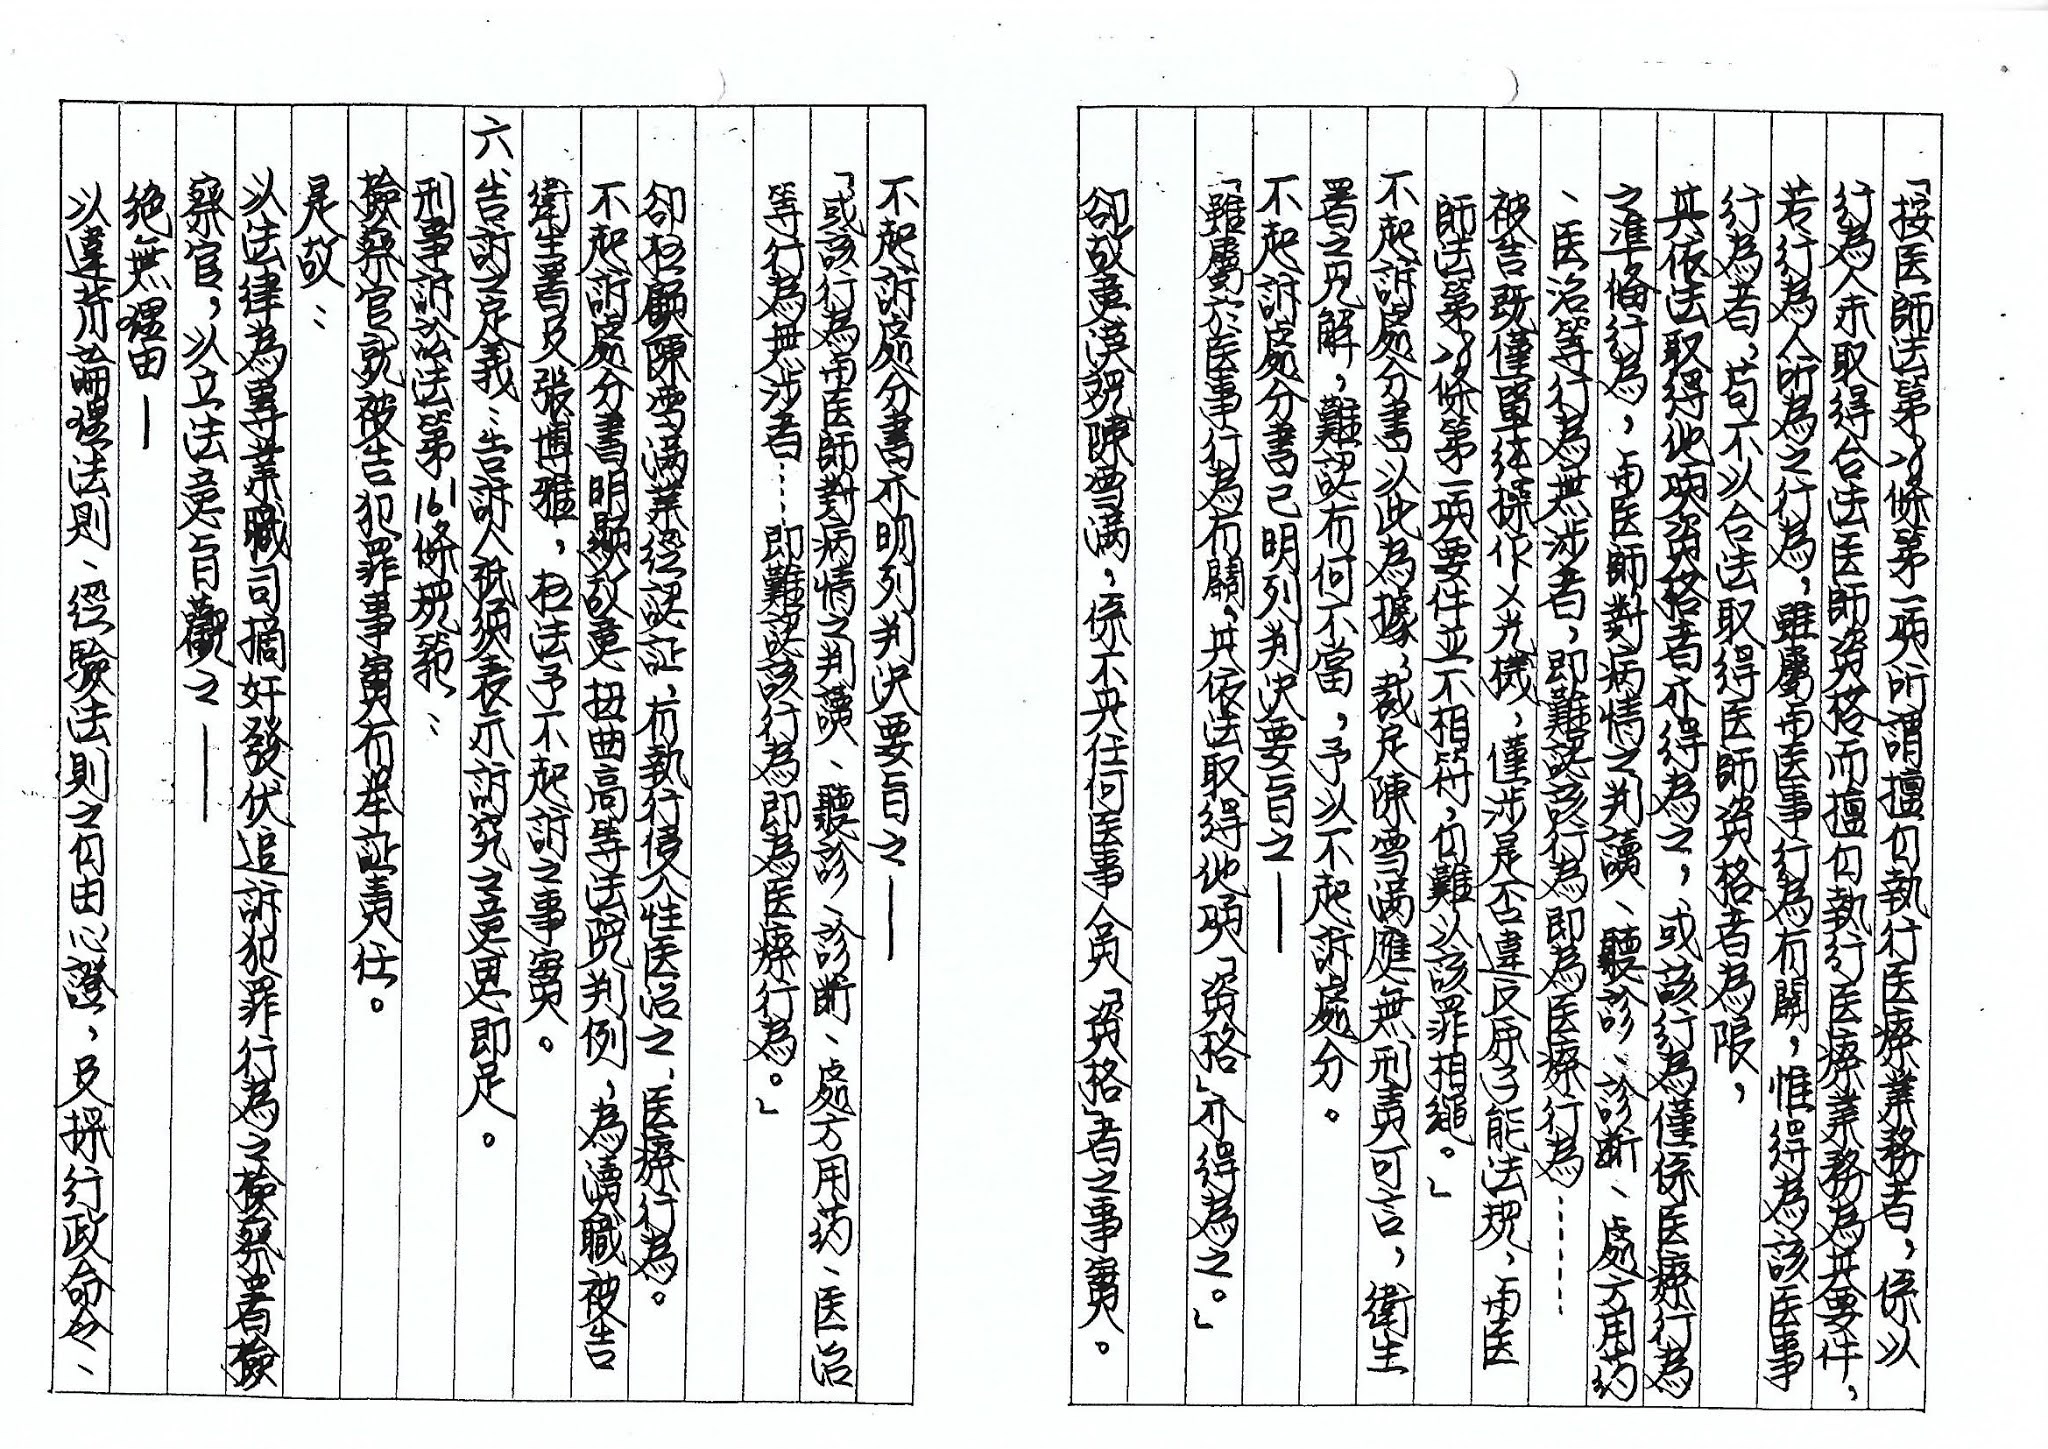 「按医師法第28條第一項所謂擅自執行医療業務者，係以
行為人未取得合法医師資格而擅自執行医療業務為其要件，
若行為人所為之行為，雖屬而医事行為有關，惟得為該医事
行為者，苟不以合法取得医師資格者為限，
其依法取得他項資格者亦得為之，或該行為僅係医療行為
之準備行為，而医師對病情之判讀、聽診、診斷、處方用葯
、医治等行為無涉者，即難認該行為即為医療行為……
被告既僅單純操作X光機，僅涉是否違反原子能法規，而医
師法第28條第一項要件並不相符，自難以該罪相繩。」
不起訴處分書以此為據，裁定陳雪滿應無刑責可言，衛生
署之見解，難認有何不當，予以不起訴處分。
不起訴處分書已明列判決要旨之—
「雖屬於医事行為有關，其依法取得他項「資格」亦得為之。」
卻故意漠視陳雪滿，係不具任何医事人員「資格」者之事實。
不起訴處分書亦明列判決要旨之—
「或該行為而医師對病情之判讀、聽診、診斷、處方用葯、医治
等行為無涉者……即難認該行為即為医療行為。」
卻枉顧陳雪滿業經認証，有執行侵入性医治之医療行為。
不起訴處分書明顯故意扭曲高等法院判例，為瀆職被告
衛生署及張博雅，枉法予不起訴之事實。
六、告訴之定義：告訴人祗須表示訴究之意思即足。
刑事訴訟法第161條規範：
檢察官就被告犯罪事實有举証責任。
是故：
以法律為專業職司摘奸發伏追訴犯罪行為之檢察署檢
察官，以立法意旨觀之—
絕無理由—
以違背論理法則、經驗法則之自由心證，及採行政命令、